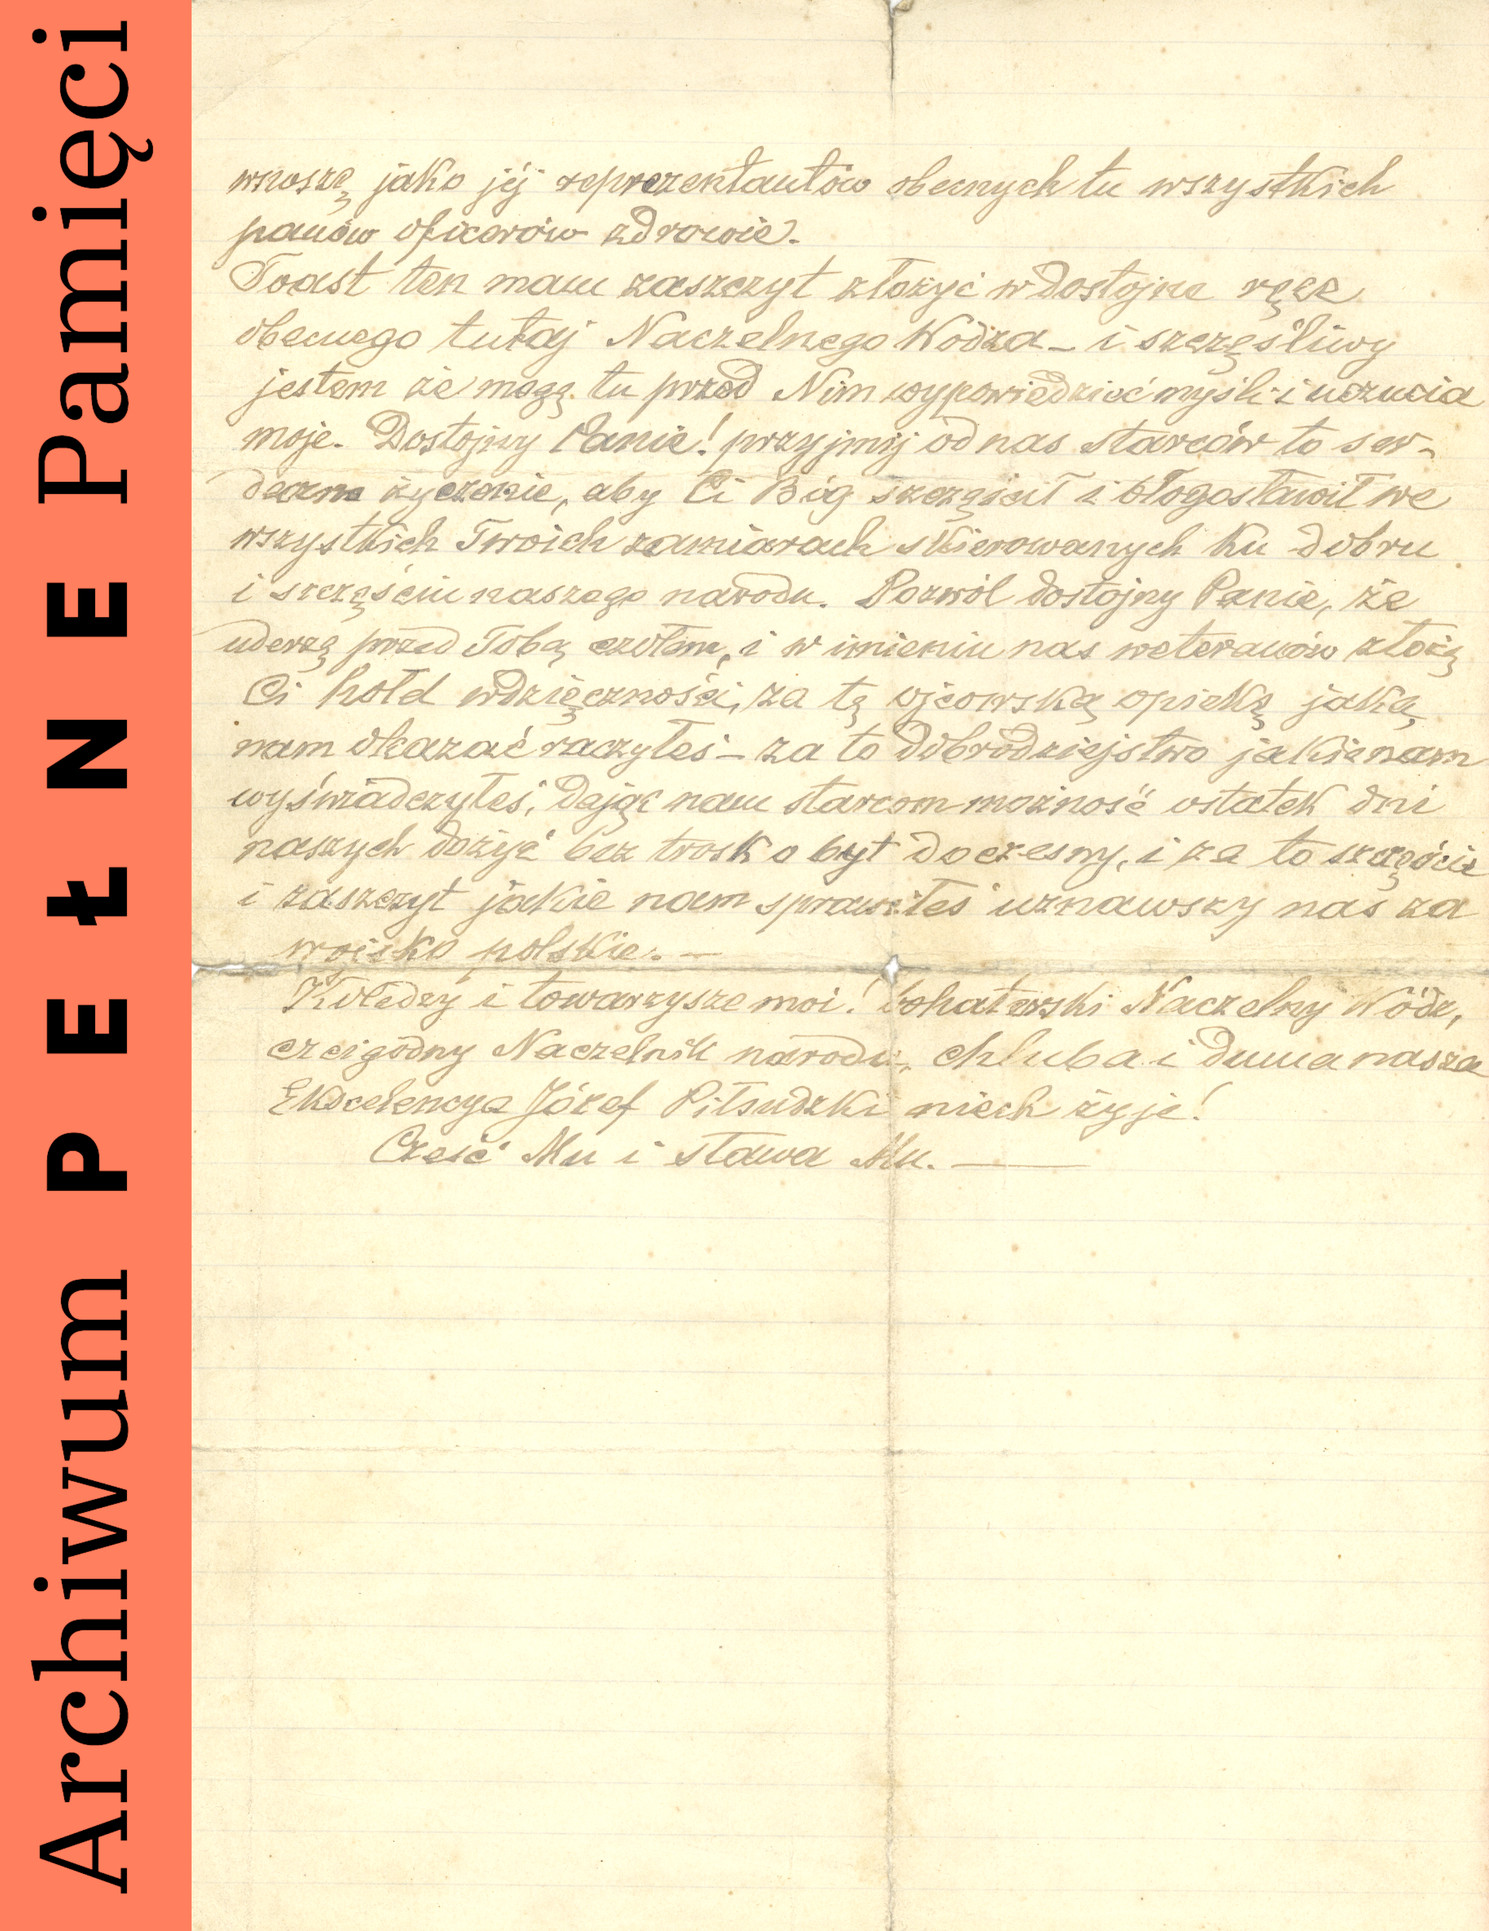 Archiwum PEŁNE Pamięci
wnoszę jako jéj reprezentantów obecnych tu wszystkich
panów oficerów zdrowie.
Toast ten mam zaszczyt złożyć w dostojne ręce
obecnego tutaj Naczelnego Wodza – i szczęśliwy
jestem że mogę tu przed Nim wypowiedzieć myśli i uczucia
moje. Dostojny Panie! przyjmij od nas starców to ser-
deczne życzenie, aby Ci Bóg szczęścił i błogosławił we
wszystkich Twoich zamiarach skierowanych ku dobru
i szczęściu naszego narodu. Pozwól dostojny Panie, że
uderzę przed Tobą czołem, i w imieniu nas weteranów złożę
Ci hołd wdzięczności, za tą ojcowską opiekę jaką
nam okazać raczyłeś – za to dobrodziejstwo jakie nam
wyświadczyłeś, dając nam starcom możność ostatek dni
naszych dożyć bez trosk o byt doczesny, i za to szczęście
i zaszczyt jakie nam sprawiłeś uznawszy nas za
wojsko polskie. —
Koledzy i towarzysze moi! bohaterski Naczelny Wódz,
czcigodny Naczelnik narodu, chluba i duma nasza
Ekscelencya Józef Piłsudzki niech żyje!
Cześć Mu i sława Mu. ——